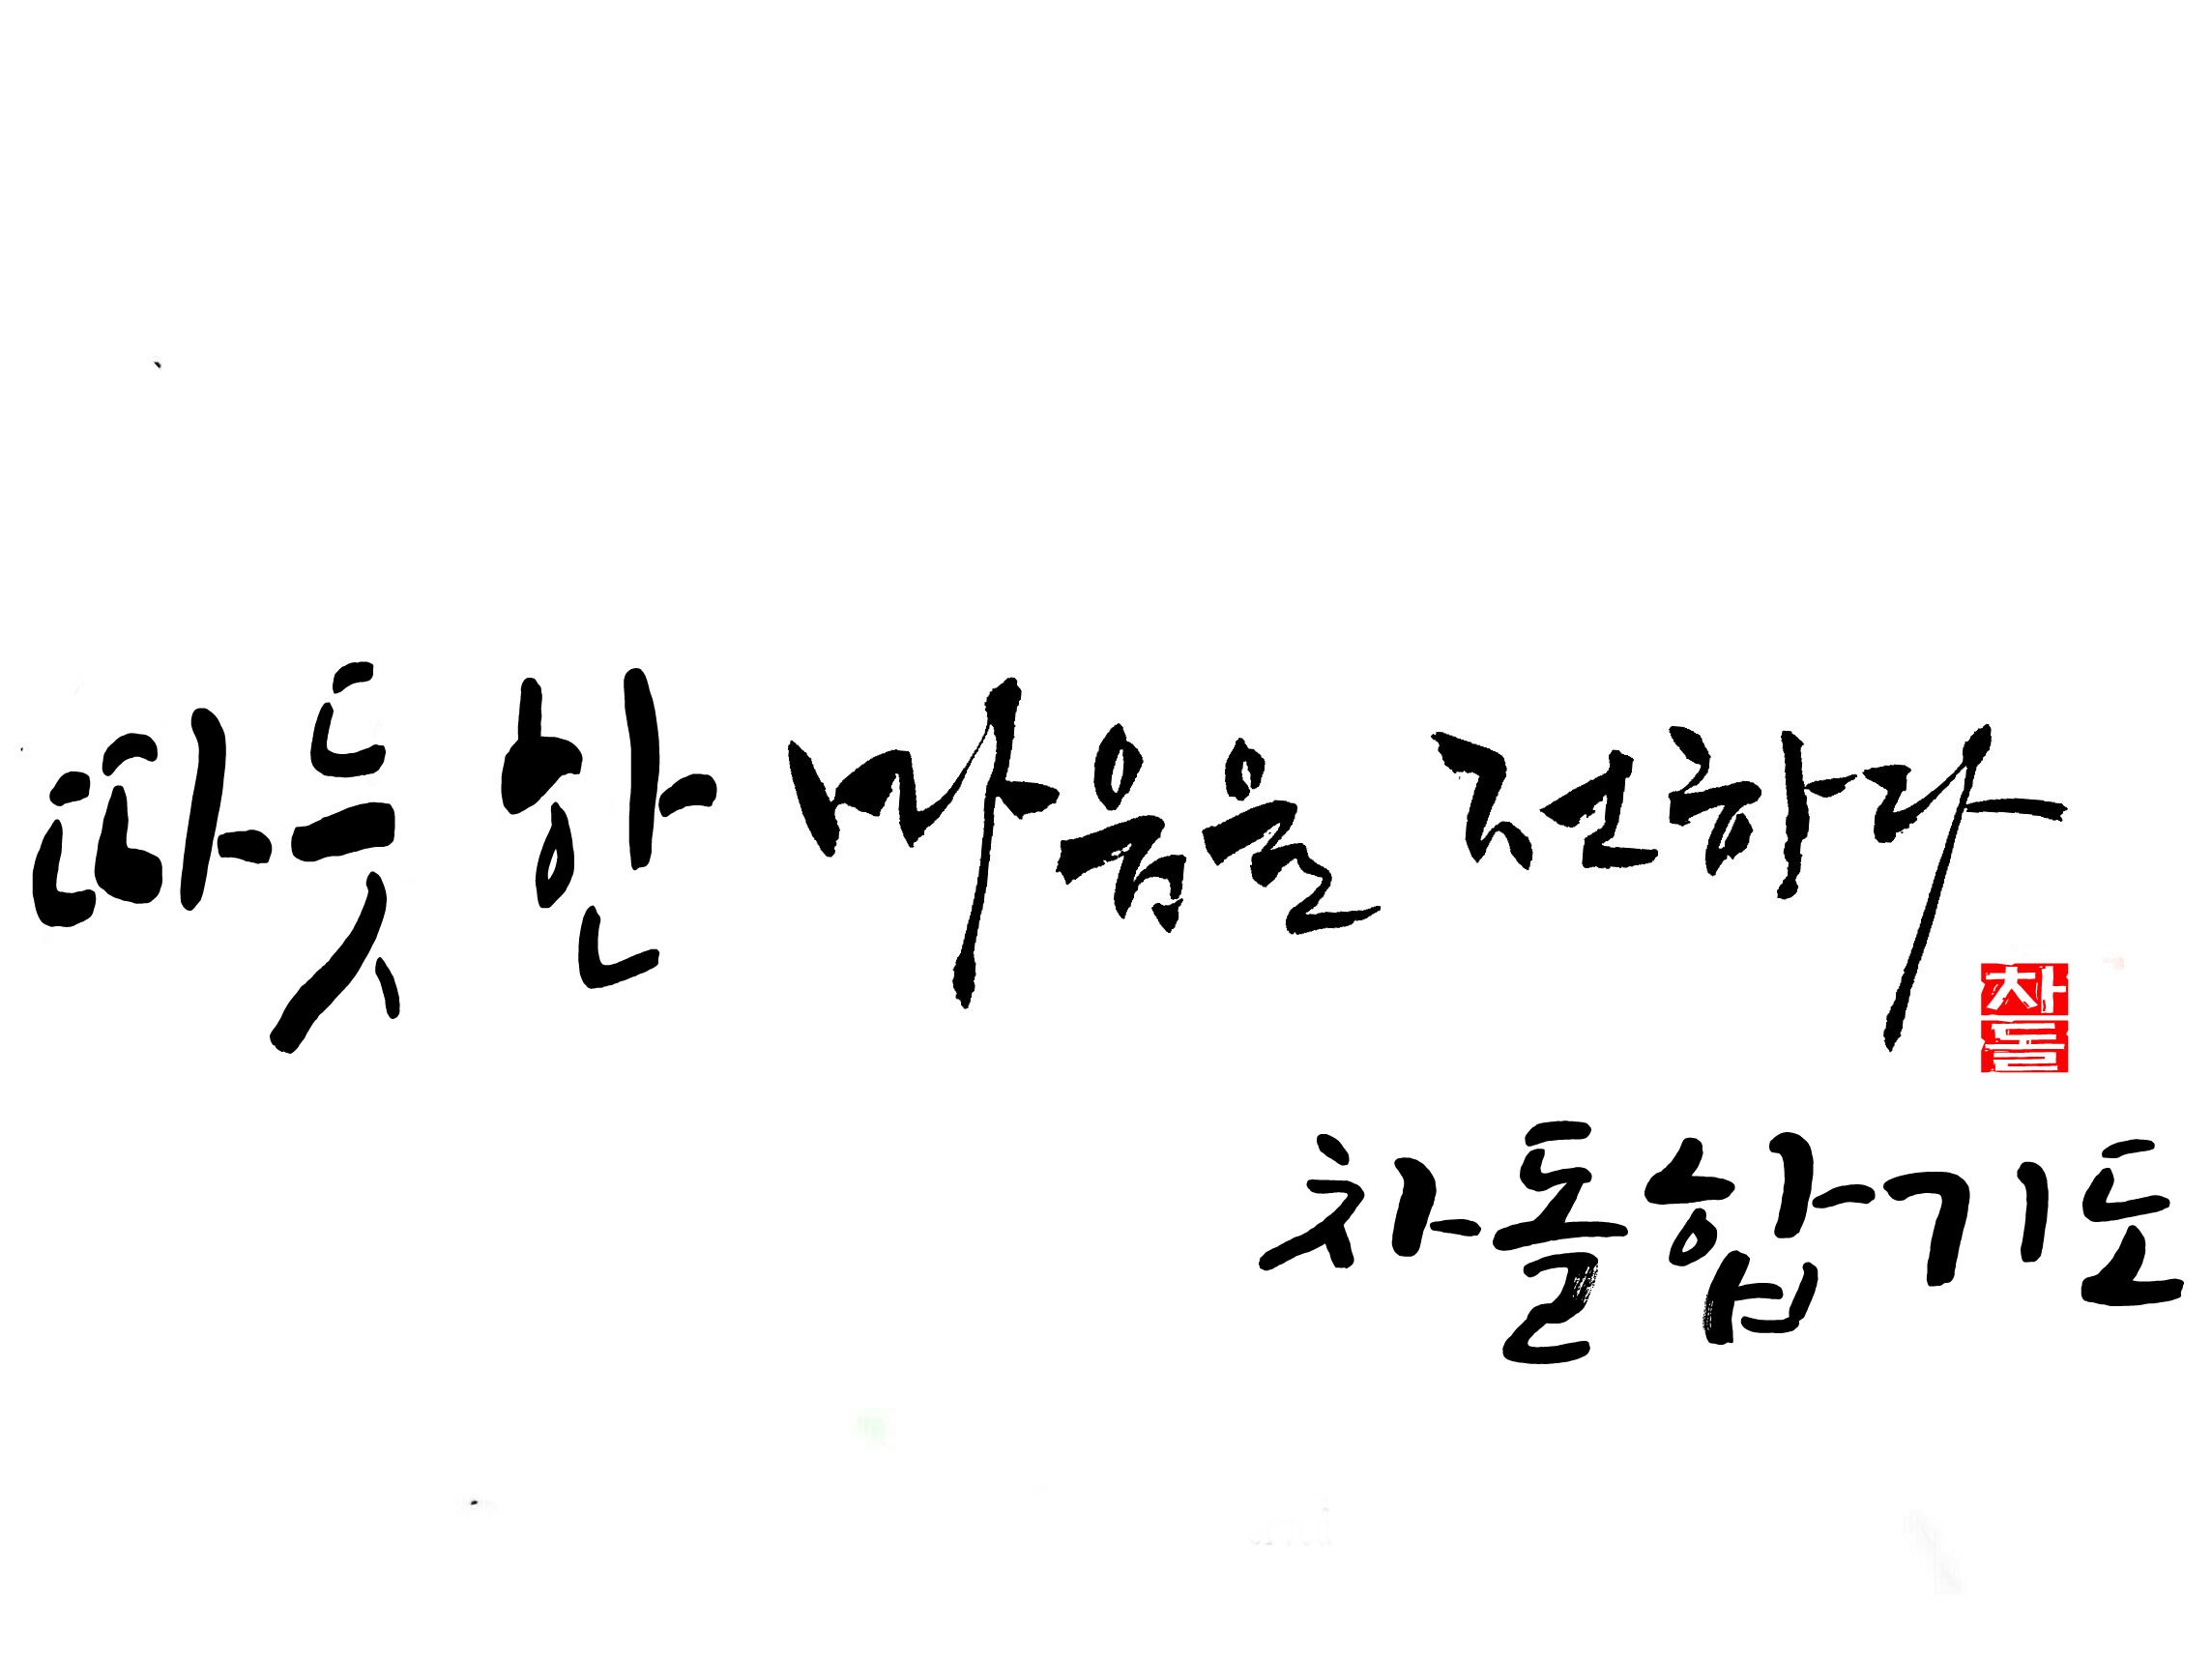 따듯한 마음을 전하다
차돌
차돌합기도